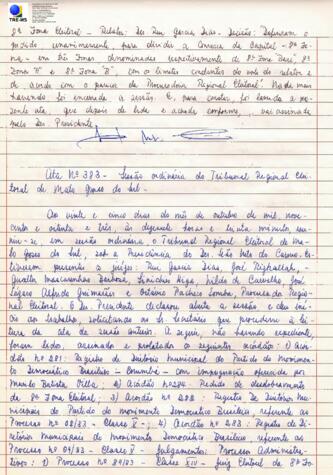 TRE-MS
8ª Zona Eleitoral - Relator: Des Rui Garcia Dias. Decisão: Deferiram o
pedido, unanimemente, para dividir a Comarca da Capital - 8ª Zo-
na - em três Zonas denominadas respectivamente de 8ª Zona
Zona "A" e 8ª Zona "B", com os limites constantes do voto do relator e
de acordo com o parecer da Procuradoria Regional Eleitoral. Nada mais
havendo foi encerrada a sessão. E, para constar, foi lavrada a pre-
sente ata, que depois de lida e achada conforme, vai assinada
pelo Des. Presidente
Ata Nº 383 - Sessão ordinária do Tribunal Regional Elei-
toral de Mato Grosso do Sul -
Ao vinte e cinco dias do mês de outubro de mil nove-
cento e oitenta e três, às dezessete horas e trinta minutos, reu-
niu-se, em sessão ordinária o Tribunal Regional Eleitoral de Ma-
to Grosso do Sul, sob a Presidência do Des. Leão Neto do Carmo. Es-
tiveram presentes os juízes: Rui Garcia Dias, José Rizkallah,
Higa, Nildo de Carvalho, José
Alfredo Guimarães e Pacheco Lomba, Procurador Regio-
nal Eleitoral. O Des. Presidente declarou aberta a sessão e deu iní-
cio ao trabalho solicitando ao Sr. Secretário que procedesse à lei-
tura da ata da sessão anterior. A seguir, não havendo expediente,
foram lidos, assinados e os seguintes acórdãos: 1) Acór-
dão nº 281: Registro de Diretório Municipal do Partido do Movimen-
to Democrático Brasileiro - Corumbá - com impugnação oferecida por
Batista Villa; 2) Acórdão nº 284. Pedido de desdobramento
da 8ª Zona Eleitoral; 3) Acórdão nº Registro de Diretórios Mu-
nicipais do Partido do movimento Democrático Brasileiro, referente ao
Processo nº 02/83 - Classe X -; 4) Acórdão nº 283: Registro de Di-
retórios municipais do Movimento Democrático Brasileiro referente ao
Processo nº 04/83 - Classe X. Julgamentos: Processos Adminis-
trativos: 1) Processo nº 39/83 - Classe XIV - juiz Eleitoral da 8ª Zo